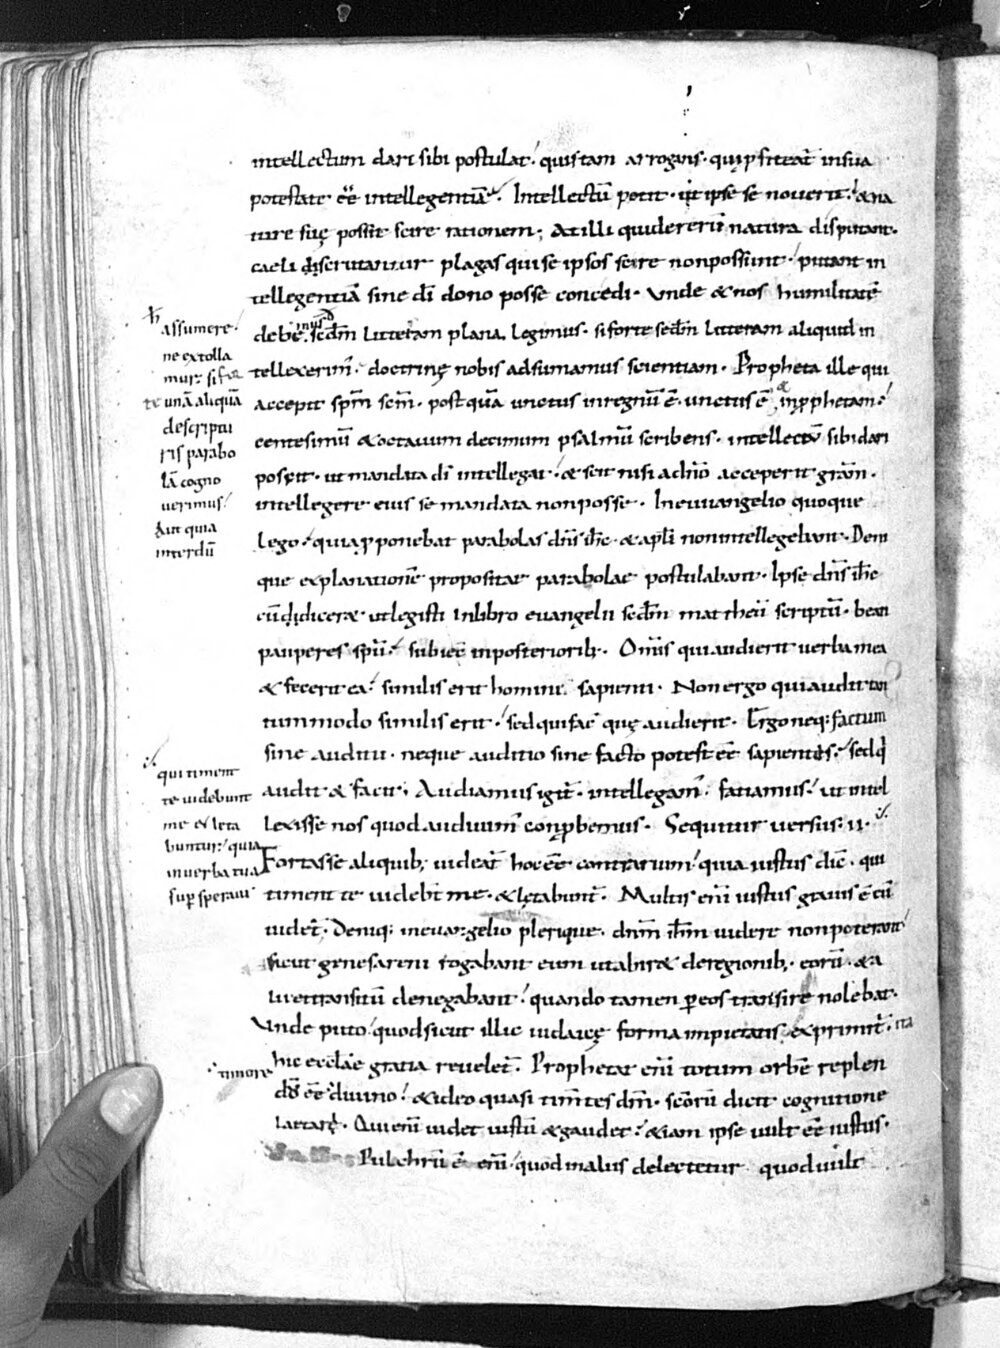 intellectum dari sibi postulat. quis tam arrogans. qui p̱fiteat̄ in sua
potestate eē̄ intellegentiā. Intellectū petit. ut ipse se noverit. & na
ture suę possit scire rationem; At illi qui de rerū natura disputant.
caeli discrutantur plagas qui se ipsos scire non possunt. putant in
tellegentiā sine dī dono posse concedi. Unde & nos humilitatē
debemus. secdm̄ litteram plana legimus. si forte secdm̄ litteram aliquid in
tellexerim̄. doctrinę nobis adsumamus scientiam. Propheta ille qui
accepit spm̄ scm̄. postquā unctus in regnū ē. unctus ē & in p̱phetam.
centesimū & octavum decimum psalmū scribens. intellectū sibi dari
poscit. ut mandata dī intellegat. & scit nisi a dn̄o acceperit gr̄am.
intellegere eius se mandata non posse. In euuangelio quoque
lego. quia p̱ponebat parabolas dn̄s ih̄c. & apli non intellegebant. Deni
que explanationē propositae parabolae postulabant. Ipse dn̄s ih̄c
cū didicerae ut legisti in libro evangelii secdm̄ mattheū scriptū. beati
pauperes spū. subiec̄ in posterioribꝫ. Om̄is qui audierit verba mea
& fecerit ea. similis erit homini sapienti. Non ergo qui audit tan
tummodo similis erit. sed qui fac̄ quę audierit. Ergo neqꝫ factum
sine auditu. neque auditio sine facto potest eē̄ sapientis. sed q̄
audit & facit; Audiamus igit̄. intellegam̄. faciamus. ut intel
lexisse nos quod audivim̄ conp̱bemus. Sequitur versus. II.
Fortasse aliquibꝫ videat̄ hoc eē̄ contrarium. quia iustus dic̄. qui
timent te videbt̄ me. & lętabunt̄. Multis eni̅ iustus gravis ē cū
videt̄. Deniqꝫ in evangelio plerique. dn̄m ih̄m videre non poterant
sicut genesareni rogabant eum ut abir& de regionibꝫ. eorū. & a
lii et transitū denegabant. quando tamen ꝑ eos transire nolebat.
Unde puto quod sicut illic iudaicę forma impietatis. exprimit̄. ita
hic eccl̄ae gratia revelet̄. Prophetae eni̅ totum orbē replen
dū eē̄ divino. & ideo quasi tim̄tes dm̄. scōrū dicit cognitione
laetarę. Qui eni̅ videt iustū & gaudet. & iam ipse vult eē̄ iustus.
Pulchrū ē eni̅. quod malus delectetur quod vult
assumere.
ne extolla
mur. si for
te unā aliquā
descriptu
ris parabo
lā cogno
verimus.
Aut quia
interdū
qui timent
te videbunt
me & lęta
buntur. quia
in verba tua
suꝑ speravi
timore